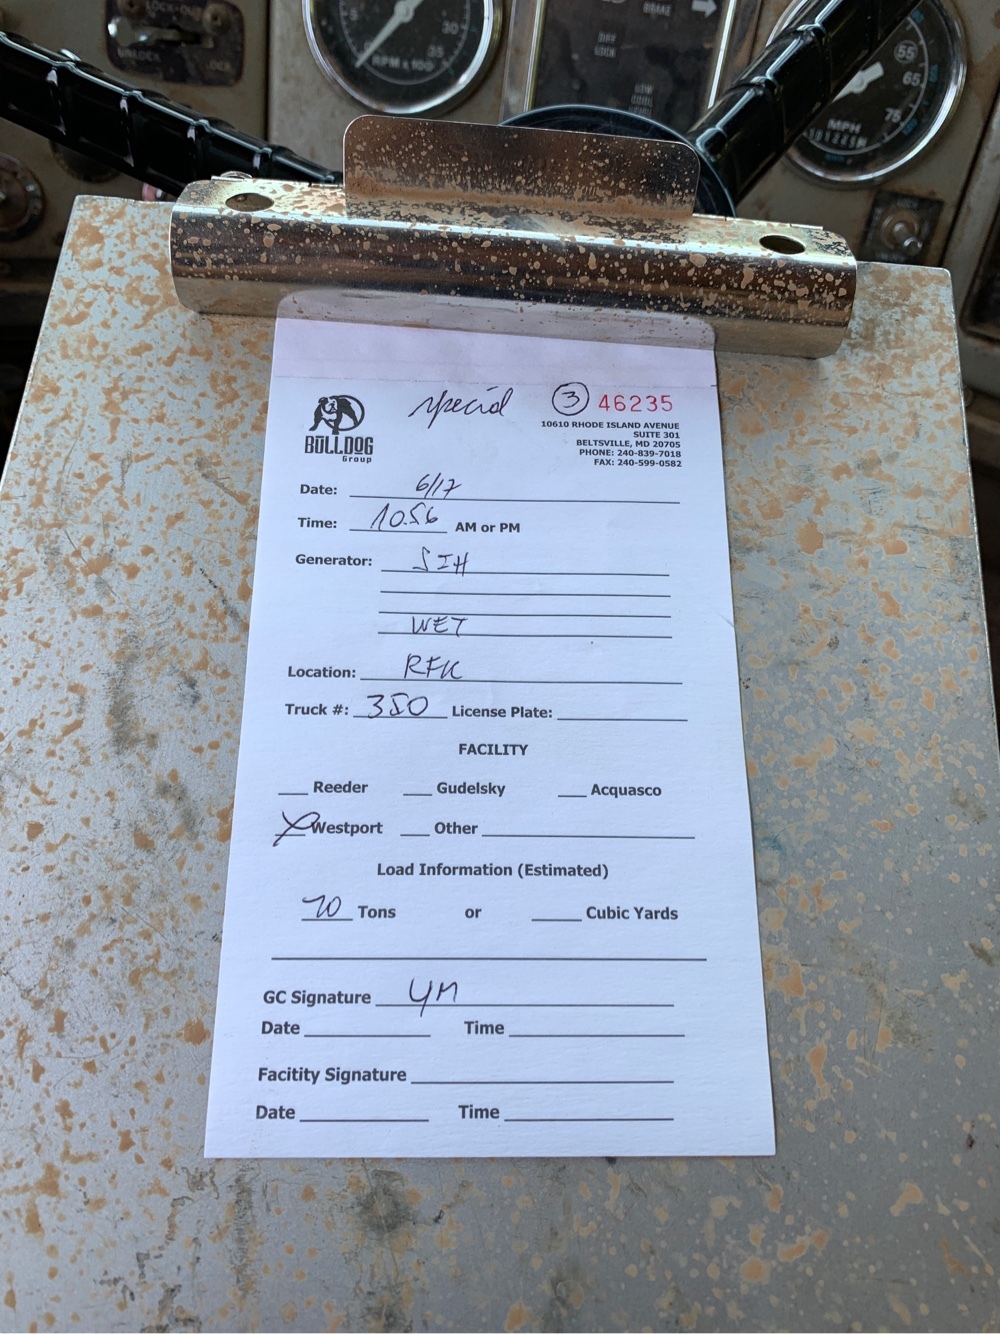 LOCK-OUT
UNLOCK LOCK
5 30
35
RPM x 100
BRAKE
DIFF
LOCK
LOW
COOL
LEVEL
55
65
75
MPH
special ③ 46235
BULLDOG
Group
10610 RHODE ISLAND AVENUE
SUITE 301
BELTSVILLE, MD 20705
PHONE: 240-839-7018
FAX: 240-599-0582
Date: 6/17
Time: 10:56 AM or PM
Generator: SIH
WET
Location: RFK
Truck #: 350 License Plate:
FACILITY
Reeder Gudelsky Acquasco
X Westport Other
Load Information (Estimated)
20 Tons or Cubic Yards
GC Signature YM
Date Time
Facitity Signature
Date Time